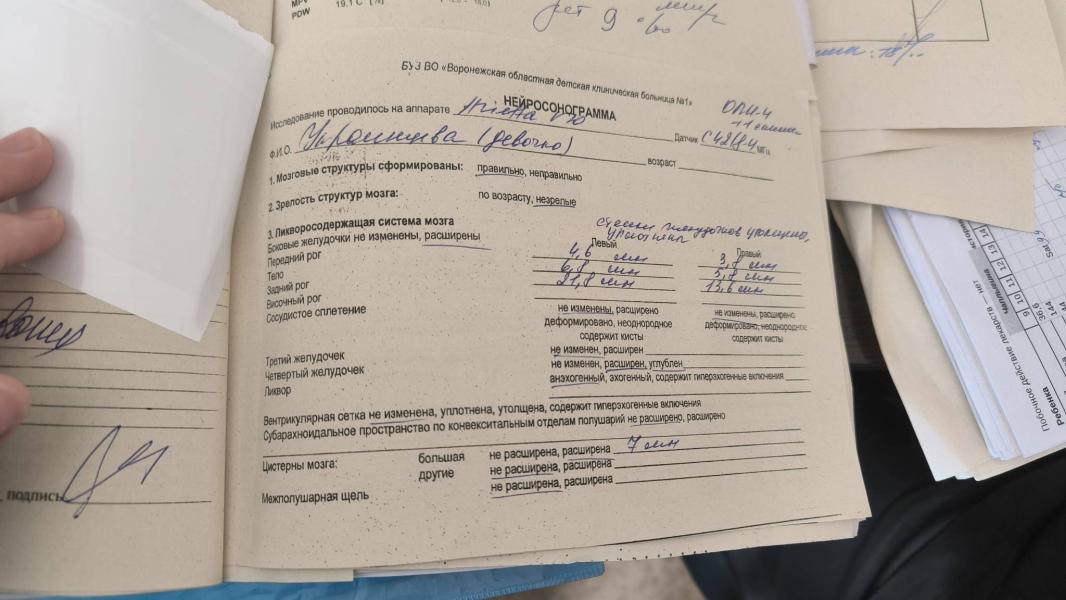 MPV 19,1 C [%]
PDW
уст 9
БУЗ ВО «Воронежская областная детская клиническая больница №1»
НЕЙРОСОНОГРАММА
Исследование проводилось на аппарате
Датчик С42/8-4 МГц
Ф.И.О. (девочка) возраст
1. Мозговые структуры сформированы: правильно, неправильно
2. Зрелость структур мозга: по возрасту, незрелые
3. Ликворосодержащая система мозга
Боковые желудочки не изменены, расширены
стенки желудочков утолщены,
уплотнены
Левый Правый
Передний рог 4,6 мм 3,8 мм
Тело 6,8 мм 5,8 мм
Задний рог 21,8 мм 13,6 мм
Височный рог
Сосудистое сплетение не изменены, расширено не изменены, расширено
деформировано, неоднородное деформировано, неоднородное
содержит кисты содержит кисты
Третий желудочек не изменен, расширен
Четвертый желудочек не изменен, расширен, углублен
Ликвор анэхогенный, эхогенный, содержит гиперэхогенные включения
Вентрикулярная сетка не изменена, уплотнена, утолщена, содержит гиперэхогенные включения
Субарахноидальное пространство по конвекситальным отделам полушарий не расширено, расширено
Цистерны мозга: большая не расширена, расширена 7 мм
другие не расширена, расширена
Межполушарная щель не расширена, расширена
подпись
Побочное действие лекарств — нет
Ребенка
36,6
144
9 10 11 12 13 14